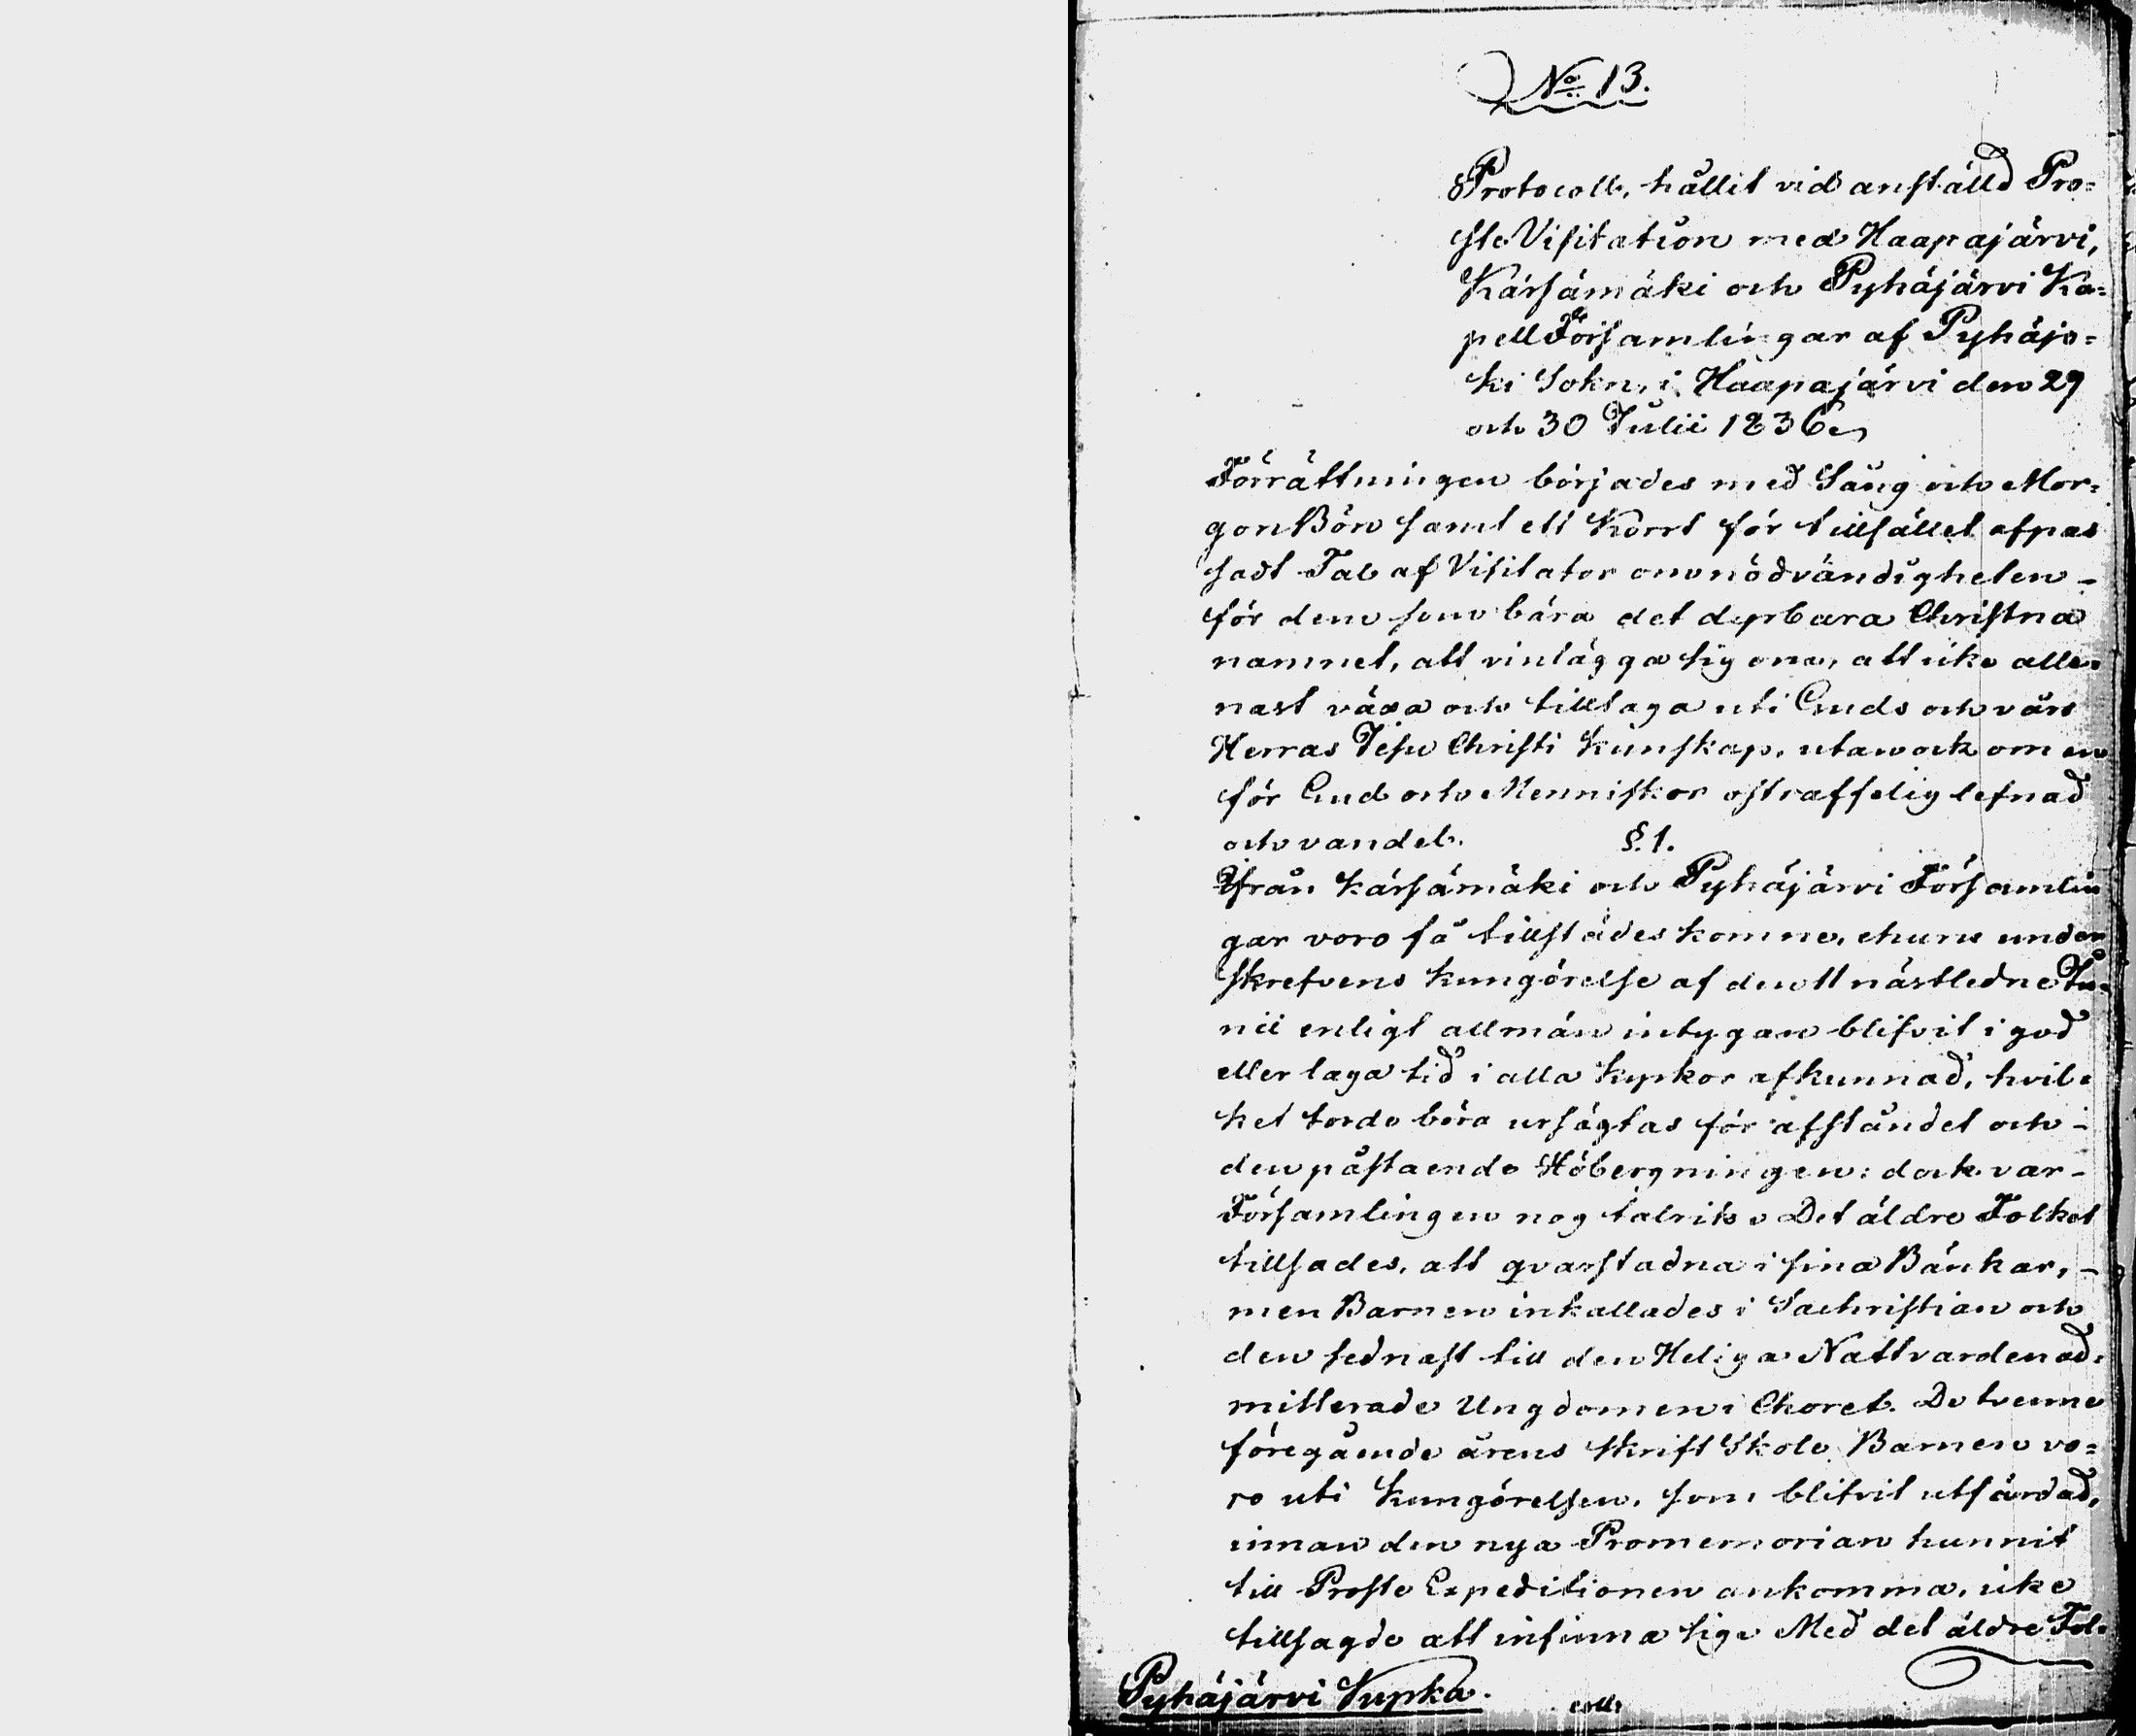 No 13.
Protocoll, hållit vid anställd Pro=
ste Visitation med Haapajärvi,
Kärsämäki och Pyhäjärvi Ka=
pell Församlingar af Pyhäjo=
ki Sokn, i Haapajärvi den 29
och 30 Julii 1836.
Förrättningen börjades med Sång och Mor=
gon Bön samt ett kort för tillfället afpas
sadt Tal af Visitator om nödvändigheten –
för dem som bära det dyrbara Christna
namnet, att vinlägga sig om, att icke alle=
nast växa och tilltaga uti Guds och vårs
Herras Jesu Christi kunskap, utan ock om en
för Gud och Menniskor ostraffelig lefnad
och vandel. §. 1.
Ifrån Kärsämäki och Pyhäjärvi Församlin
gar voro få tillstädes komne, ehuru under
skrefvens kungörelse af den 11 nästledne Ju=
nii enligt allmän intygan blifvit i god
eller laga tid i alla kyrkor afkunnad, hvil=
ket torde böra ursägtas för afståndet och –
den påstående Höbergningen: dock var –
Församlingen nog talrik. Det äldre Folket
tillsades, att qvarstadna i sina Bänkar, –
men Barnen inkallades i Sachristian och
den sednast till den Heliga Nattvarden ad=
mitterade Ungdomen i Choret. De tvenne
föregående årens Skrift Skole Barnen vo=
ro uti kungörelsen, som blifvit utfärdad,
innan den nya Promemorian hunnit
till Proste Expeditionen ankomma, icke
tillsagde att infinna sig. Med det äldre Fol=
Pyhäjärvi Kyrka. coll.